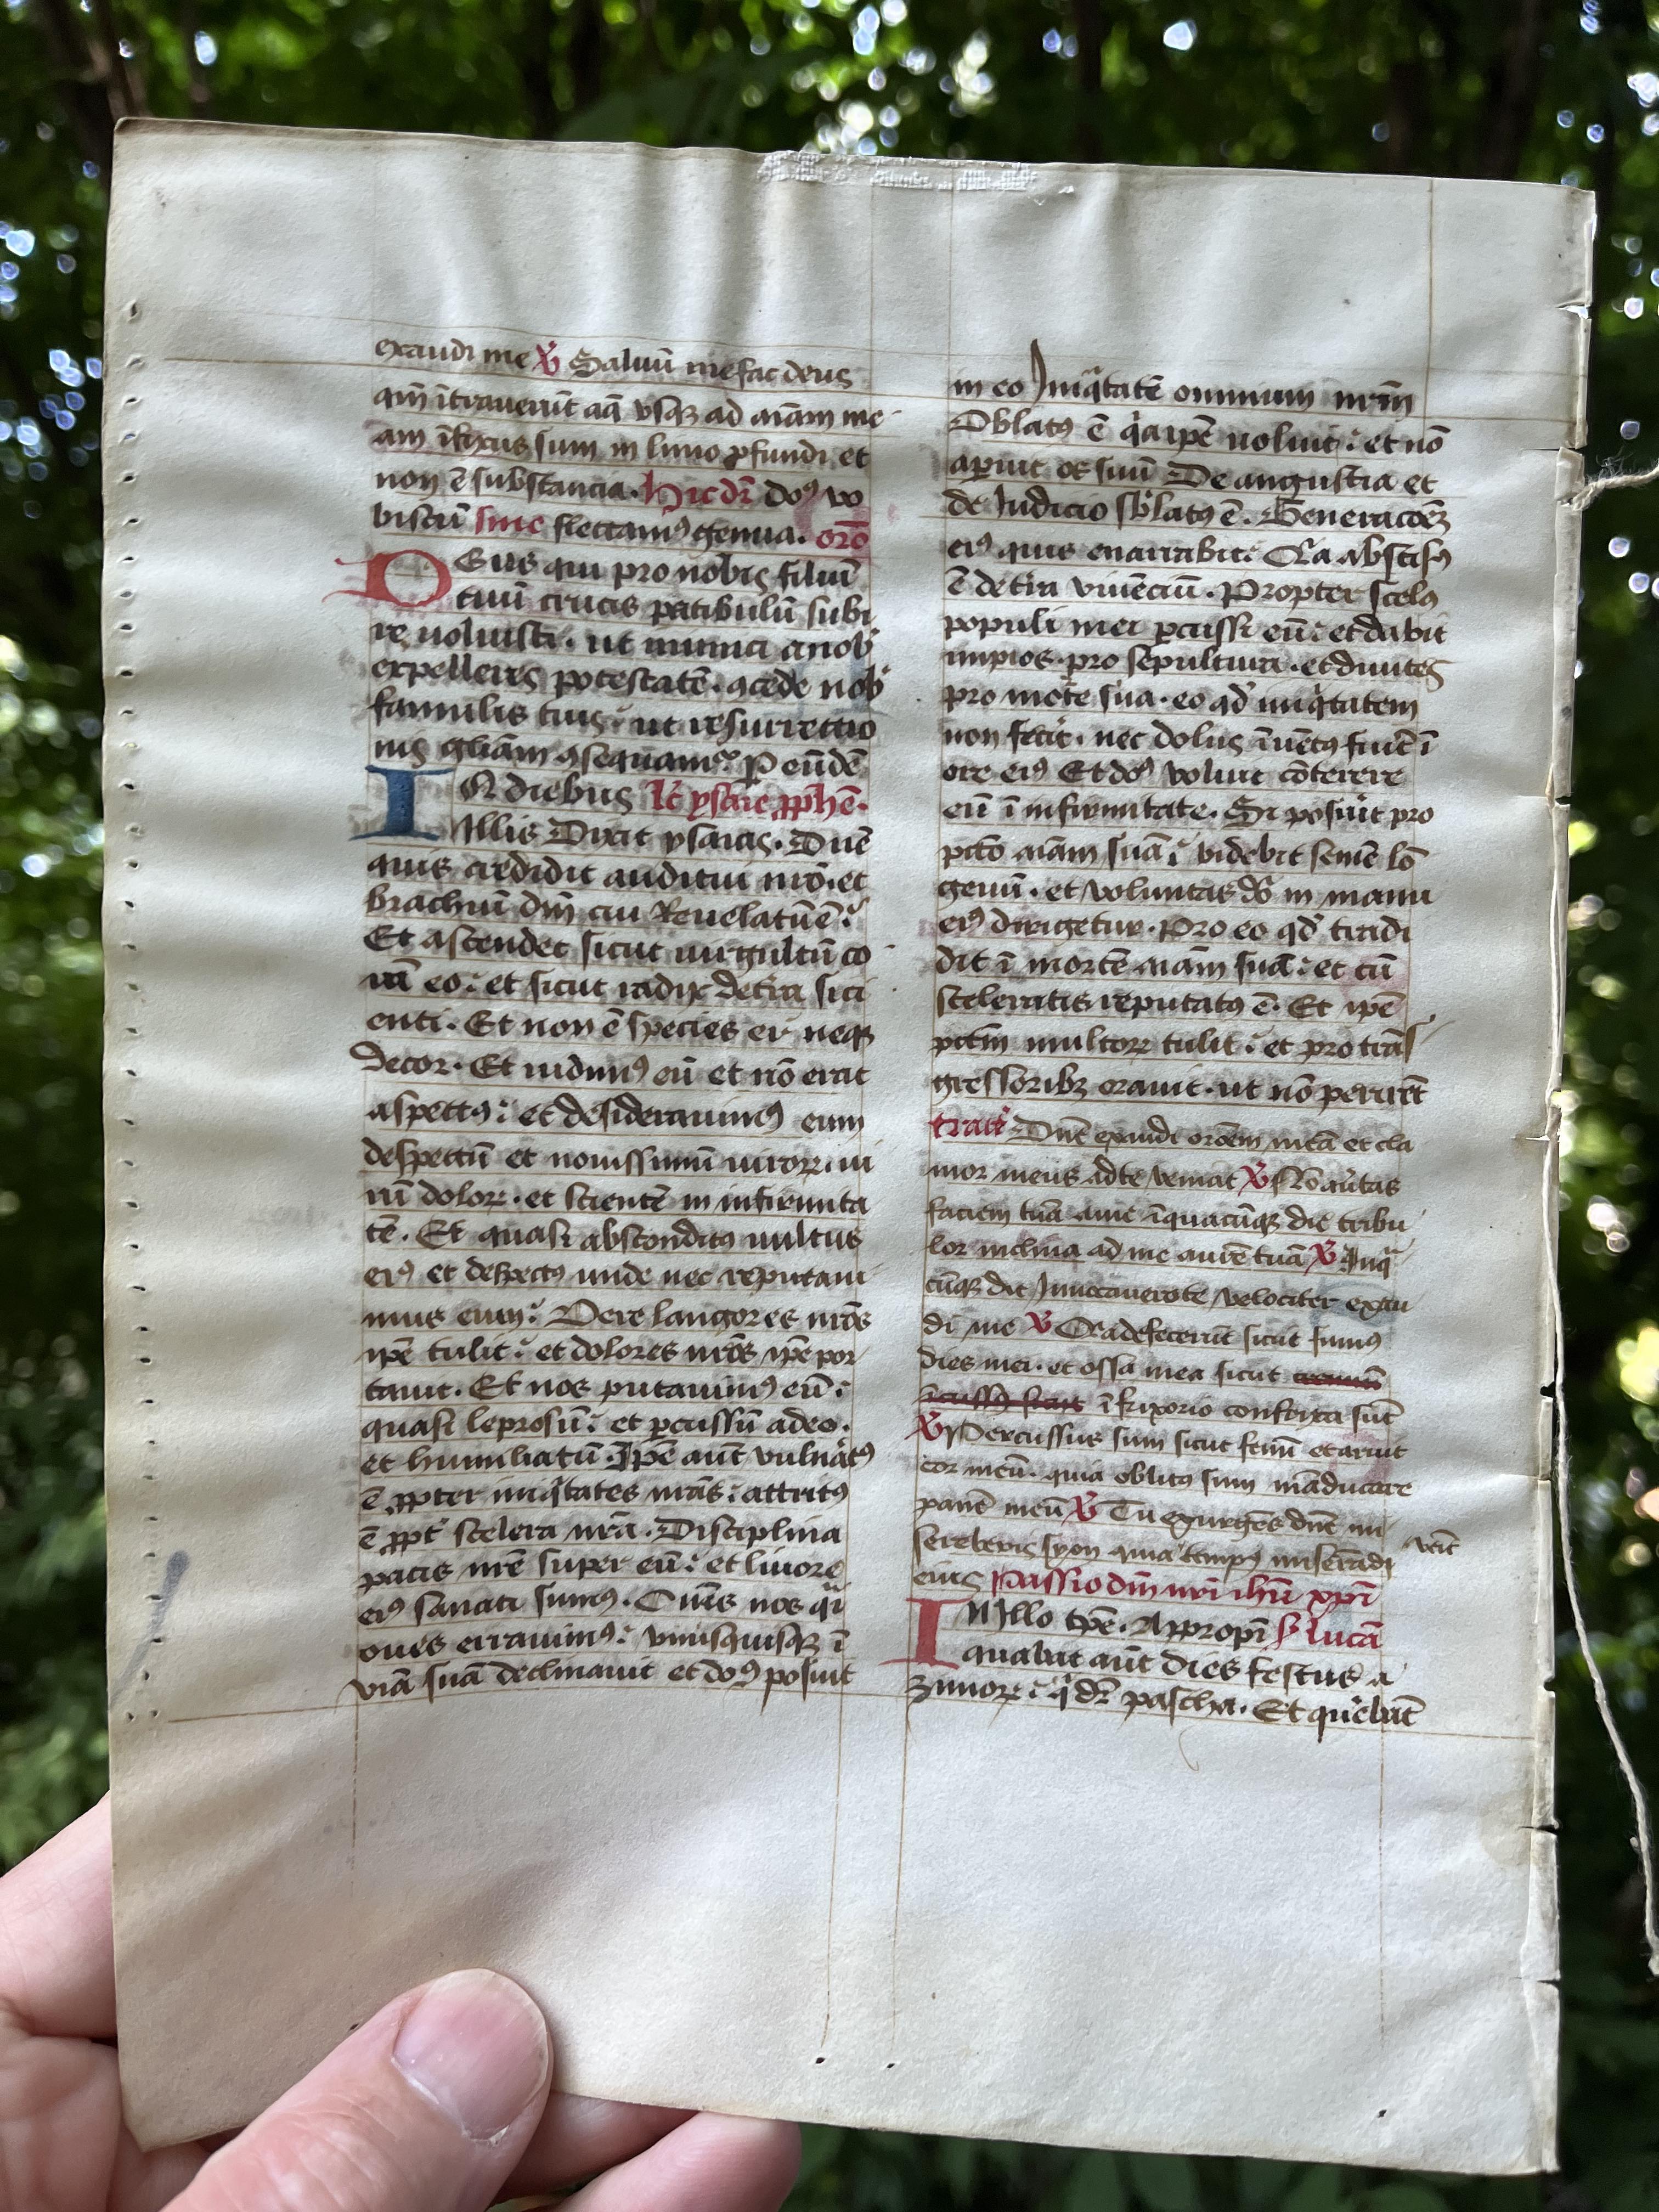 exaudi me ℣ Saluū me fac deus
qm̄ ītrauerūt aq̄ vsqꝫ ad aīam me
am īfixus sum in limo ꝓfundi et
non ē substancia. Hic dr̄ dn̄s vo
biscū sine flectamꝰ genua. oro
Deus qui pro nobis filiū
tuū crucis patibulū subi
re voluisti. ut inimici a nob̄
expelleres potestatē. ꝯcede nob̄
famulis tuis: ut resurrectio
nis gl̄iam ꝯsequamur. P eūdē
In diebus lc̄ ysaie ꝓphē.
illis Dixit ysaias. Dn̄e
quis credidit auditui nr̄o. et
brachiū dn̄i cui Reuelatū ē:
Et ascendet sicut uirgultū co
rā eo: et sicut radix de tr̄a siti
enti. Et non ē species ei neqꝫ
decor. Et uidimꝰ eū et nō erat
aspectꝰ: et desiderauimꝰ eum
despectū et nouissimū uiroꝝ. ui
rū doloꝝ. et scientē in infirmita
tē. Et quasi absconditꝰ uultus
eiꝰ et despectꝰ unde nec reputaui
mus eum: Vere langores nr̄os
ip̄e tulit: et dolores nr̄os ip̄e por
tauit. Et nos putauimꝰ eū:
quasi leprosū: et ꝑcussū a deo.
et humiliatū. Ip̄e aūt vulnͣatꝰ
ē ꝓpter iniqͥtates nr̄as: attritꝰ
ē ꝓpt̄ scelera nr̄a. Disciplina
pacis nr̄e super eū: et liuore
eiꝰ sanati sumꝰ. Om̄s nos qͣi
oues errauimꝰ: vnusquisqꝫ ī
viā suā declinauit et dn̄s posuit
in eo Iniqͥtatē omnium nr̄m
Oblatꝰ ē qͥa ip̄e uoluit: et nō
aperuit os suū De angustia et
de Iudicio sb̄latꝰ ē. Generacōeꝫ
eiꝰ quis enarrabit: Qͥa abscisꝰ
ē de tr̄a viuēciū. Propter scelꝰ
populi mei ꝑcussi eū: et dabit
impios. pro sepultura. et diuites
pro morte sua. eo qd̓ iniqͥtatem
non fecit. nec dolus īuētꝰ fuit ī
ore eiꝰ Et dn̄s voluit cōterere
eū ī infirmitate. Si posuit pro
pctō aīam suā: videbit semē lō
geuū. et voluntas dn̄i in manu
eiꝰ dirigetur. Pro eo qd̓ tradi
dit ī mortē aīam suā: et cū
sceleratis reputatꝰ ē. Et ip̄e
pctm̄ multoꝝ tulit: et pro trās
gressoribꝫ orauit. ut nō perirēt
tractꝰ Dn̄e exaudi orōem meā et cla
mor meus ad te veniat ℣ Nō aūtas
faciem tuā a me ī quacūqꝫ die tribu
lor inclina ad me aurē tuā ℣ In qͣ
cūqꝫ die Inuocauero te velociter exau
di me ℣ Qͥa defecerūt sicut fumꝰ
dies mei. et ossa mea sicut
ī frixorio confrixa sūt
℣ Percussus sum sicut fenū et aruit
cor meū. quia oblitꝰ sum māducare
panē meū ℣ Tu exurgēs dn̄e mi
sereberis syon quia tempꝰ miserādi venit
eius Passio dn̄i nr̄i ih̄u xp̄i
In illo tp̄e. Appropī s̄ lucā
quabat aūt dies festus a
zimoꝝ: qͥ dr̄ pascha. Et querebāt